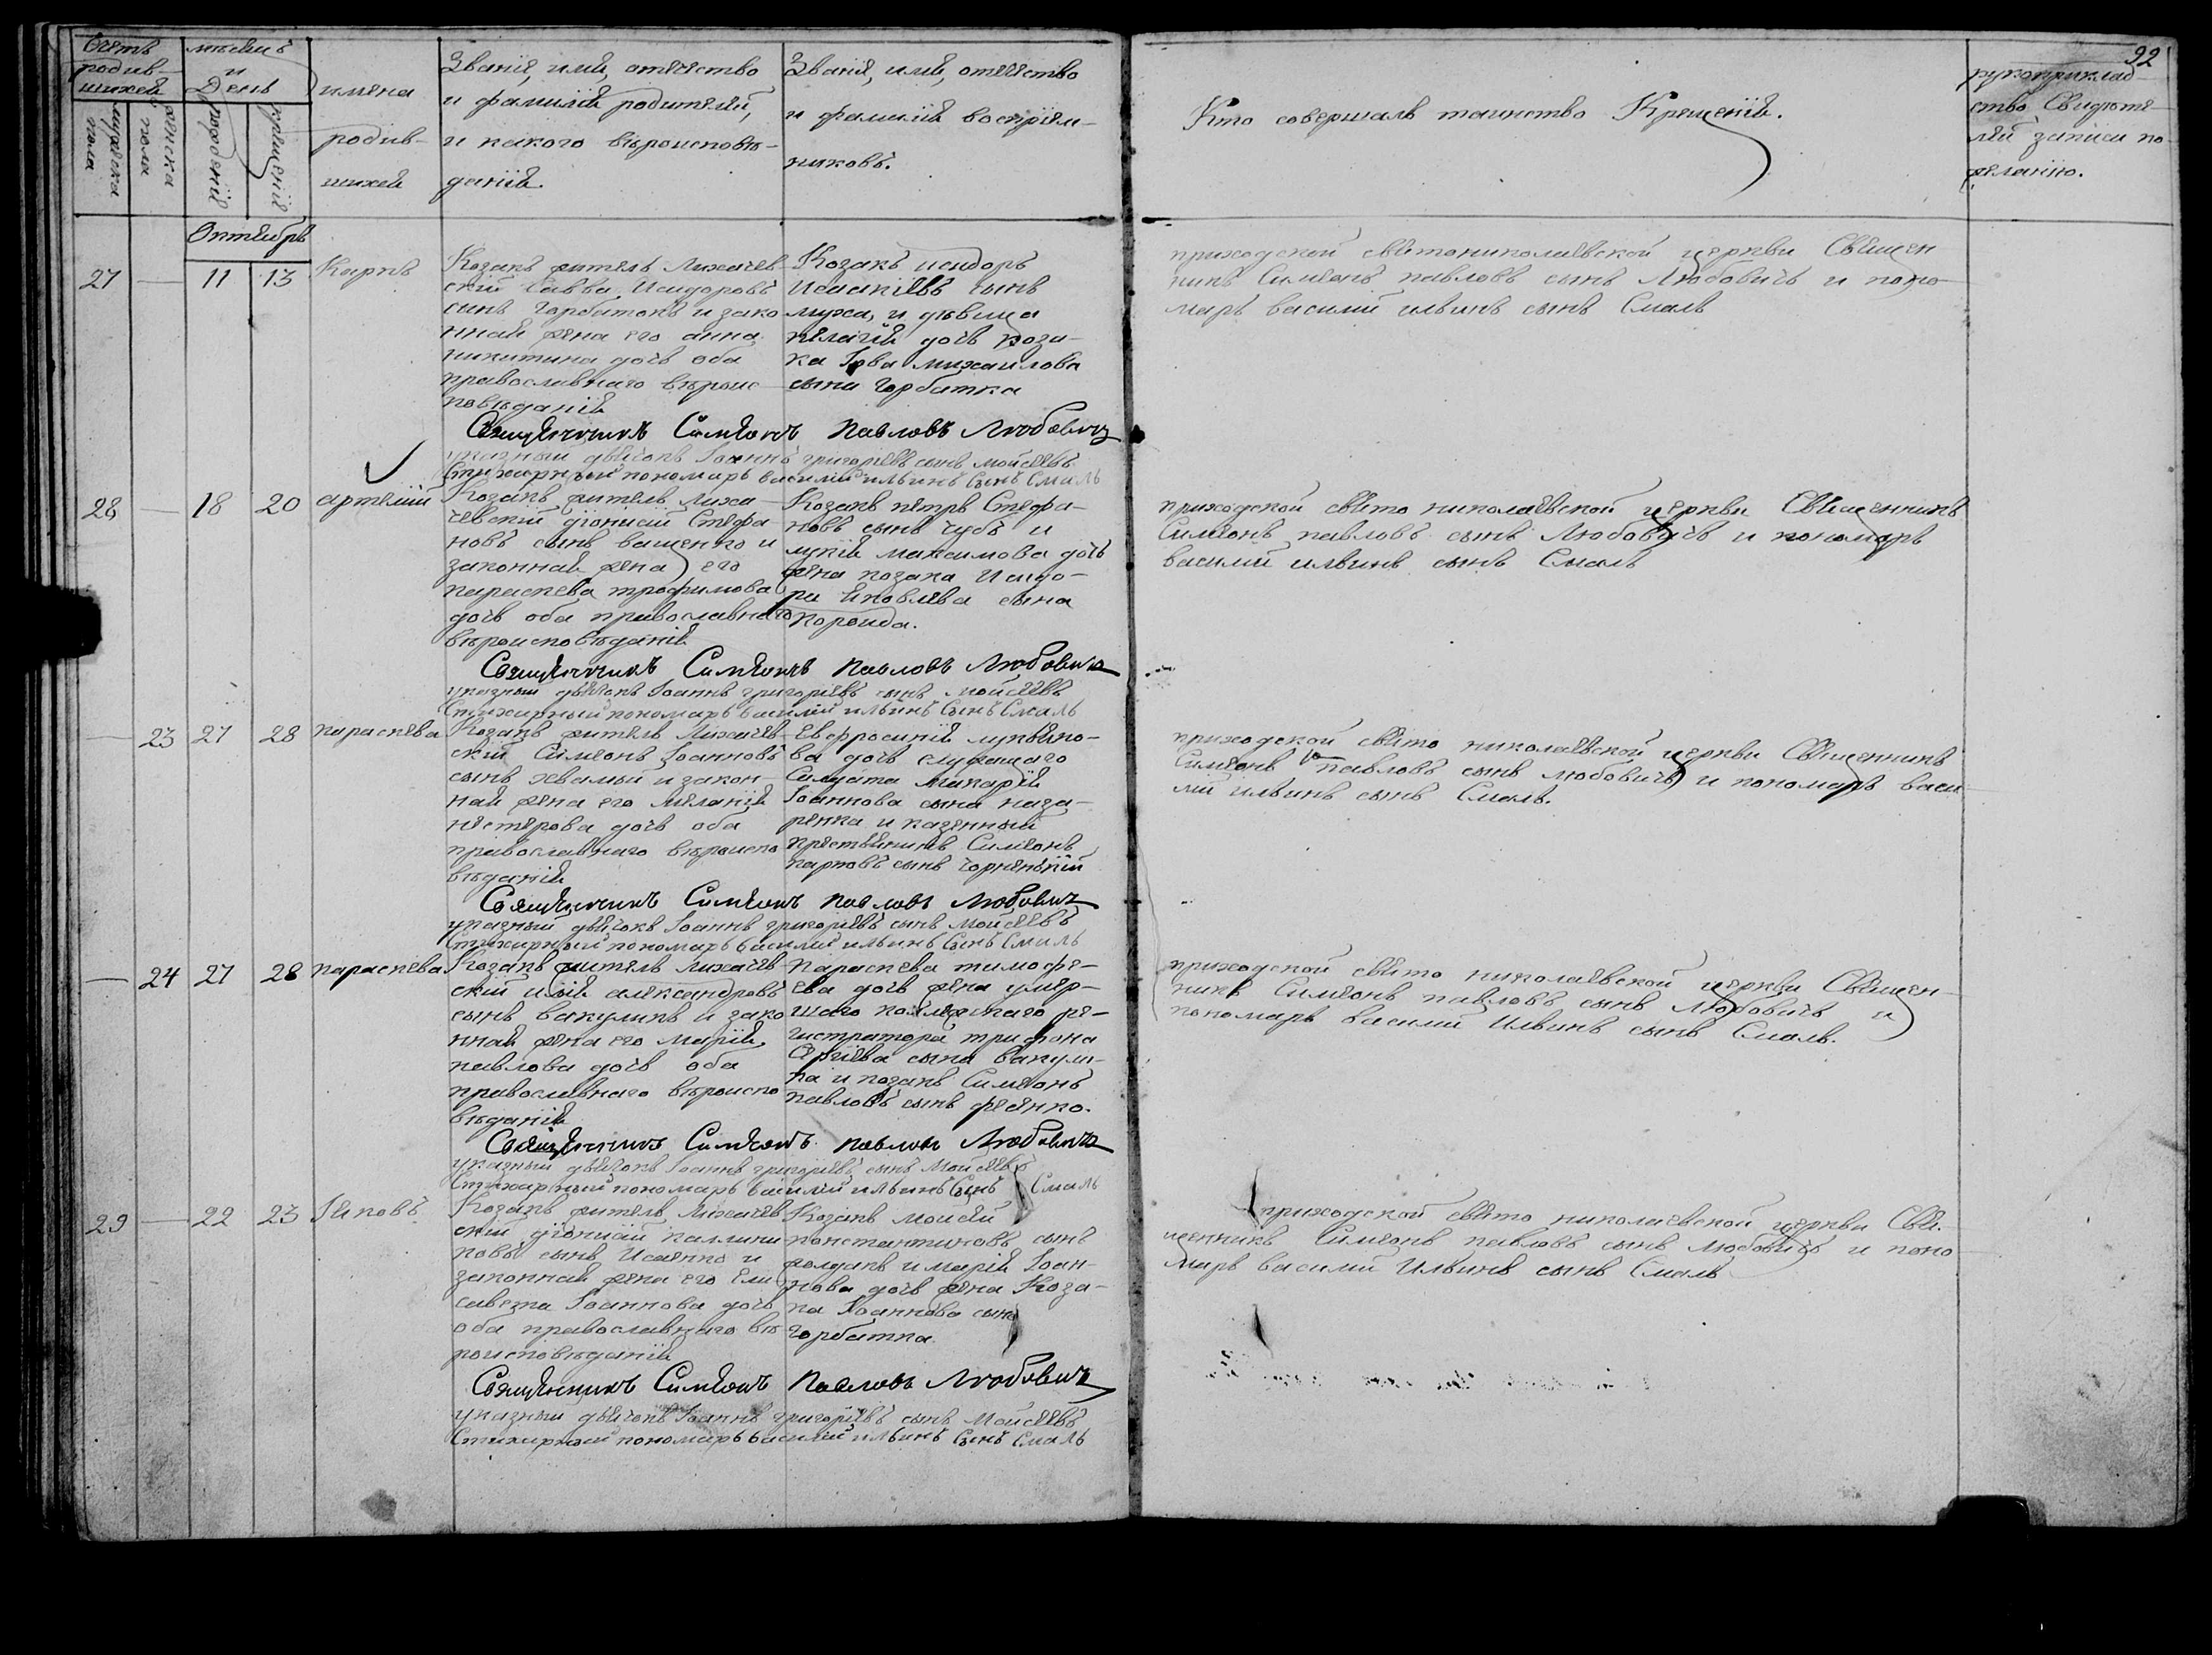 92
Счетъ
родив-
шихся
мѣсяцъ
и
День
мужеска
пола
женска
пола
рожденія
крещенія
имена
родив-
шихся
Званіе, имя, отечество
и фамилія родителей,
и какого вѣроисповѣ-
данія.
Званіе, имя, отечество
и фамилія воспріем-
никовъ.
Кто совершалъ таинство Крещенія.
рукоприклад-
ство Свидете-
лей записи по
желанію.
Октябрь
27 — 11 13 Карпъ
Козакъ житель Лихачев-
скій Савва Исидоровъ
сынъ Горбатокъ и зако
нная жена его анна
никитина дочь оба
православнаго вѣроис
повѣданія
Козакъ исидоръ
Исаакіевъ сынъ
муха, и дѣвица
пелагія дочь коза-
ка Іова михаилова
сына Горбатка
приходской святониколаевской церкви Священ
никъ Симеонъ павловъ сынъ Любовичъ и поно-
марь василий ильинъ сынъ Смаль
Священникъ Симеонъ Павловъ Любовичъ
указный дьячокъ Іоаннъ григоріевъ сынъ мойсеевъ
Стихарный пономарь василій ильинъ Сынъ Смаль
28 — 18 20 артемій
Козакъ житель лиха-
чевскій діонисій Стефа
новъ сынъ ващенко и
законная жена его
параскева трофимова
дочь оба православнаго
вѣроисповѣданія
Козакъ петръ Стефа-
новъ сынъ чубъ и
лукія максимова дочь
жена козака Исидо-
ра Яковлева сына
приходской свято николаевской церкви Священникъ
Симеонъ павловъ сынъ Любовичъ и пономарь
василий ильинъ сынъ Смаль
Священникъ Симеонъ Павловъ Любовичъ
указный дьячокъ Іоаннъ григоріевъ сынъ мойсеевъ
Стихарный пономарь василій ильинъ Сынъ Смаль
— 23 27 28 параскева
Козакъ житель Лихачев-
скій Симеонъ Іоанновъ
сынъ и закон-
ная жена его меланія
нестерова дочь оба
православнаго вѣроиспо
вѣданія
Евфросинія лукьяно-
ва дочь служащаго
Салдата макарія
Іоаннова сына наза-
ренка и казенный
крестьянинъ Симеонъ
карповъ сынъ чорненькій
приходской свято николаевской церкви Священникъ
Симеонъ павловъ сынъ любовичъ и пономарь васи-
лий ильинъ сынъ Смаль.
Священникъ Симеонъ Павловъ Любовичъ
указный дьячокъ Іоаннъ григоріевъ сынъ мойсеевъ
Стихарный пономарь василій ильинъ Сынъ Смаль
— 24 27 28 параскева
Козакъ житель лихачев-
скій илія александровъ
сынъ вакуликъ и зако
нная жена его марія
павлова дочь оба
православнаго вѣроиспо
вѣданія
Параскева тимофе-
ева дочь жена умер-
шаго колежскаго ре-
гистратора трифона
сына вакули-
ка и козакъ Симеонъ
павловъ сынъ
приходской свято николаевской церкви Священ-
никъ Симеонъ павловъ сынъ Любовичъ и
пономарь василий Ильинъ сынъ Смаль.
Священникъ Симеонъ Павловъ Любовичъ
указный дьячокъ Іоаннъ григоріевъ сынъ Мойсеевъ
Стихарный пономарь василій ильинъ Сынъ Смаль
29 — 22 23 Іяковъ
Козакъ житель Лихачев
скій діонисій каллини
ковъ сынъ Исаенко и
законная жена его Ели
савета Іоаннова дочь
оба православнаго вѣ
роисповѣданія
Козакъ мойсей
константиновъ сынъ
и марія Іоан-
нова дочь жена Коза-
ка Іоаннова сына
Горбатка
приходской свято николаевской церкви Свя-
щенникъ Симеонъ павловъ сынъ Любовичъ и поно
марь василий Ильинъ сынъ Смаль
Священникъ Симеонъ Павловъ Любовичъ
указный дьячокъ Іоаннъ григоріевъ сынъ Мойсеевъ
Стихарный пономарь василій ильинъ Сынъ Смаль